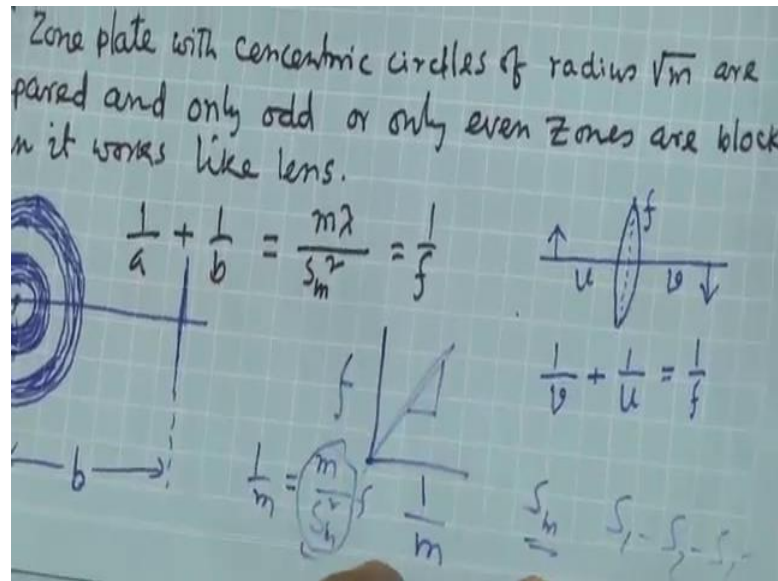 Zone plate with concentric circlles of radius √m are
pared and only odd or only even zones are block
n it works like lens.
1/a + 1/b = mλ/S_m² = 1/f
f
u v
1/v + 1/u = 1/f
f
b
1/m = m/S_m² f
1/m
S_m S₁ - S₂ - S₃ -